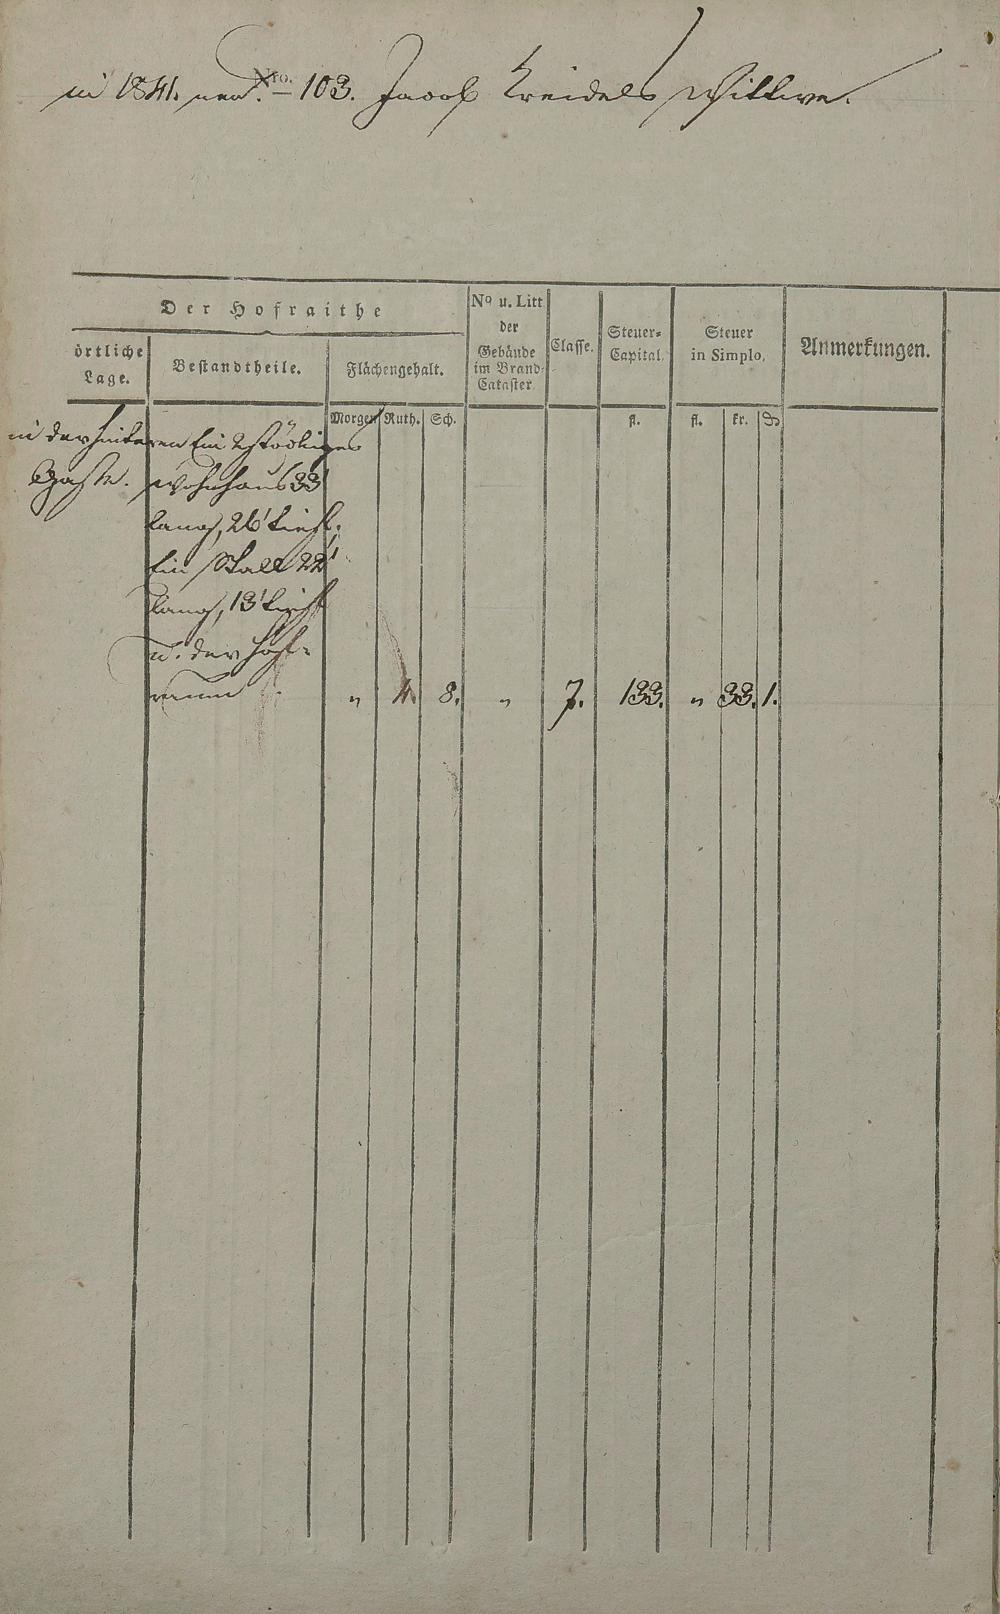 in 1841. neu. Nro. 103. Jacob Kreidels Wittwe.
Der Hofraithe
örtliche Lage.
Bestandtheile.
Flächengehalt.
No u. Litt der Gebäude im Brand-Cataster
Classe.
Steuer-Capital.
Steuer in Simplo.
Anmerkungen.
Morgen Ruth. Sch. fl. fl. kr. ₰
in der hinteren Ein 2stöckiges
Gasse. Wohnhaus 33'
lang, 26' tief;
Ein Stall 22'
lang, 13' tief
u. der Hof-
raum " 4. 8. " 7. 133. " 33. 1.